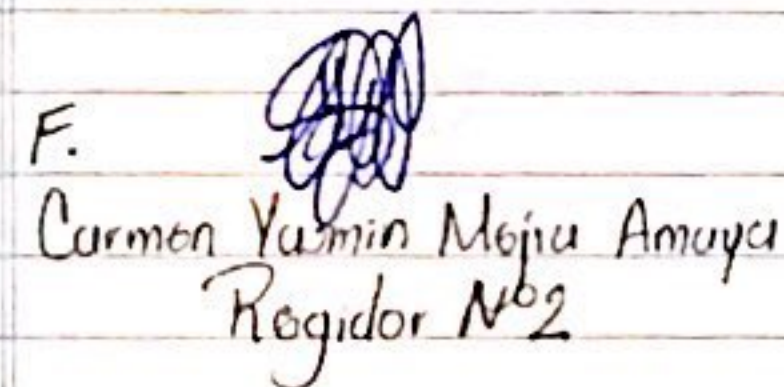 F.
Carmen Yamin Mejia Amaya
Regidor Nº2